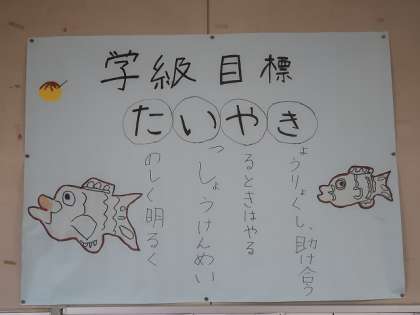 学級目標
たいやき
のしく明るく
っしょうけんめい
るときはやる
ょうりょくし、助け合う